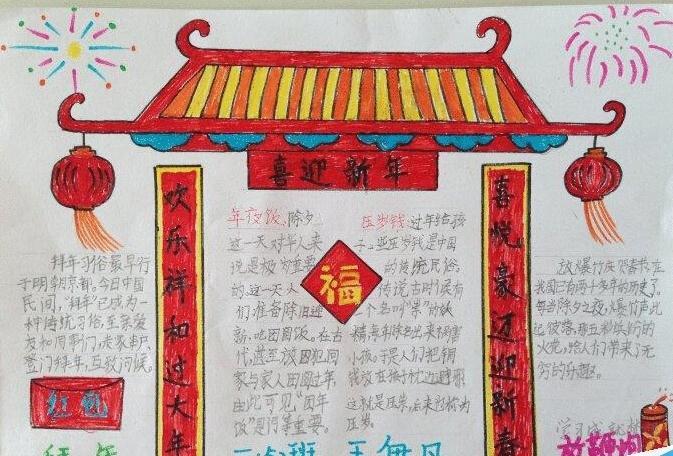 喜迎新年
欢乐祥和过大年
喜悦豪迈迎新春
福
拜年习俗最早行
于明朝京都。今日中国
民间,"拜年"已成为一
种传统习俗,至亲爱
友和同事们,走家串户
登门拜年,互致问候。
红包
拜年
年夜饭:除夕
这一天对华人来
说是极为重要
的,这一天人
们准备除旧迎
新,吃团圆饭。在古
代,甚至放囚犯回
家与家人团圆过年,
由此可见"团年
饭"是何等重要。
压岁钱:过年给孩
子一些压岁钱是中国
的传统民俗。
传说古时候有
一个名叫"祟"的妖
精,每年除夕出来伤害
小孩,于是人们把铜
钱放在孩子枕边避邪
这就是压祟,后来也称为
压岁。
放爆竹庆贺春节,在
我国已有两千多年的历史了
每当除夕之夜,爆竹声此
起彼落,那五彩缤纷的
火花,给人们带来了无
穷的乐趣。
放鞭炮